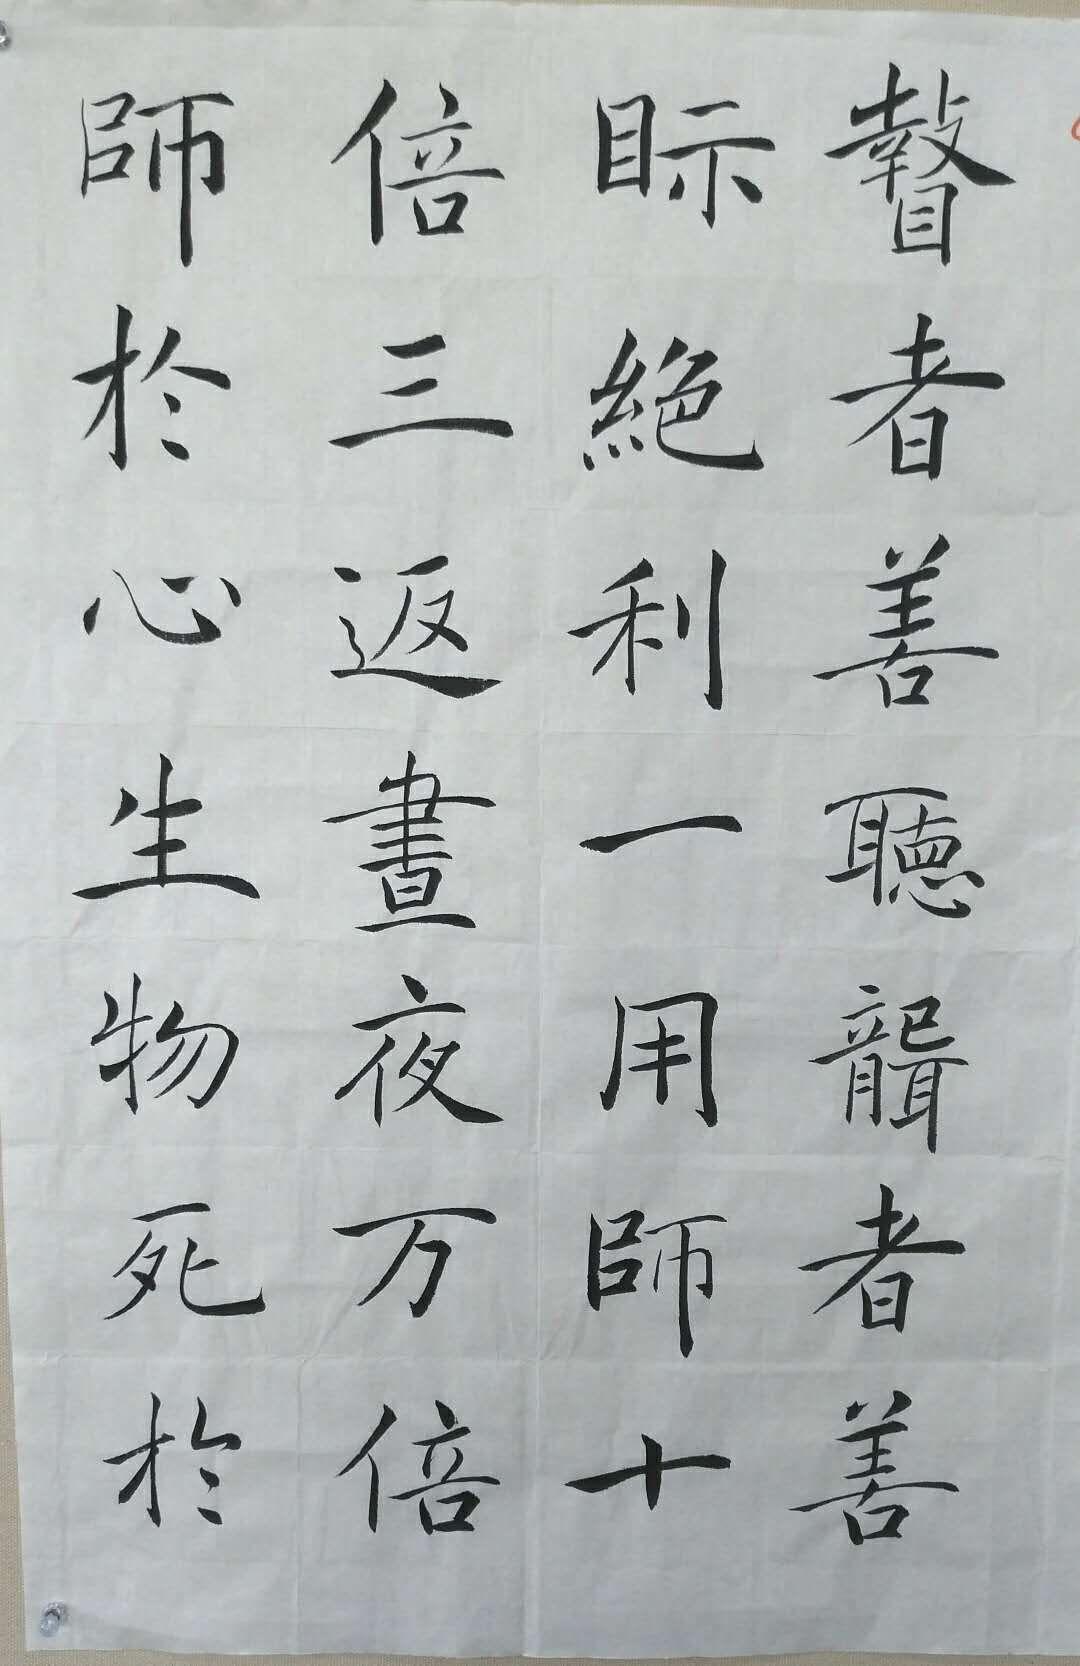 瞽者善聽聾者善
眎絶利一用師十
倍三返晝夜万倍
師於心生物死於